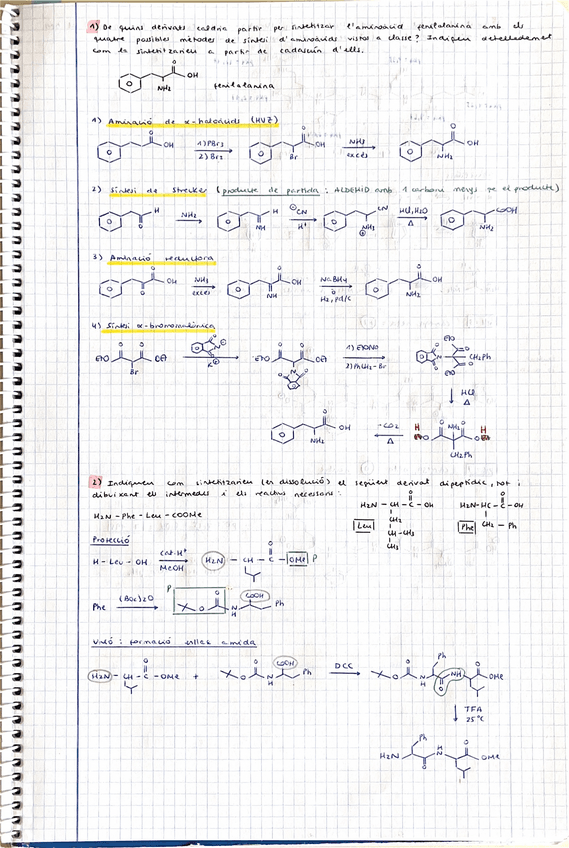 1) De quins derivats caldria partir per sintetitzar l'aminoàcid fenilalanina amb els
quatre possibles mètodes de síntesi d'aminoàcids vistos a classe? Indiqueu detalladament
com la sintetitzaríeu a partir de cadascun d'ells.
O OH NH2 fenilalanina
1) Aminació de α-haloàcids (HVZ)
O OH 1) PBr3 2) Br2 O OH Br NH3 excés O OH NH2
2) Síntesi de Strecker (producte de partida: ALDEHID amb 1 carboni menys que el producte)
H O NH3 H NH ⊖CN H+ CN NH3 ⊕ HCl, H2O Δ COOH NH2
3) Aminació reductora
O OH O NH3 excés O OH NH NaBH4 o H2, Pd/C O OH NH2
4) Síntesi α-bromomalònica
EtO O O OEt Br K⊕ EtO O O OEt N 1) EtONa 2) PhCH2-Br EtO O CH2Ph N EtO O
HCl Δ
O OH NH2 -CO2 Δ HO O NH2 O OH CH2Ph
2) Indiqueu com sintetitzaríeu (en dissolució) el següent derivat dipeptídic, tot i
dibuixant els intermedis i els reactius necessaris:
H2N - Phe - Leu - COOMe
H2N - CH - C - OH O CH2 CH-CH3 CH3 Leu
H2N - HC - C - OH O CH2 - Ph Phe
Protecció
H - Leu - OH cat. H+ MeOH H2N - CH - C - OMe O P
Phe (Boc)2O P O O N H COOH Ph
Unió: formació enllaç amida
H2N - CH - C - OMe O + O O N H COOH Ph DCC O O N H Ph O NH O OMe
TFA 25ºC
H2N Ph O N H O OMe